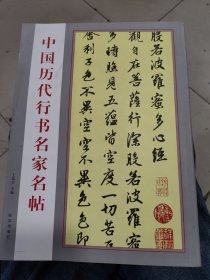 中国历代行书名家名帖
般若波羅蜜多心經
觀自在菩薩行深般若波羅蜜
多時照見五蘊皆空度一切苦厄
舍利子色不異空空不異色色即